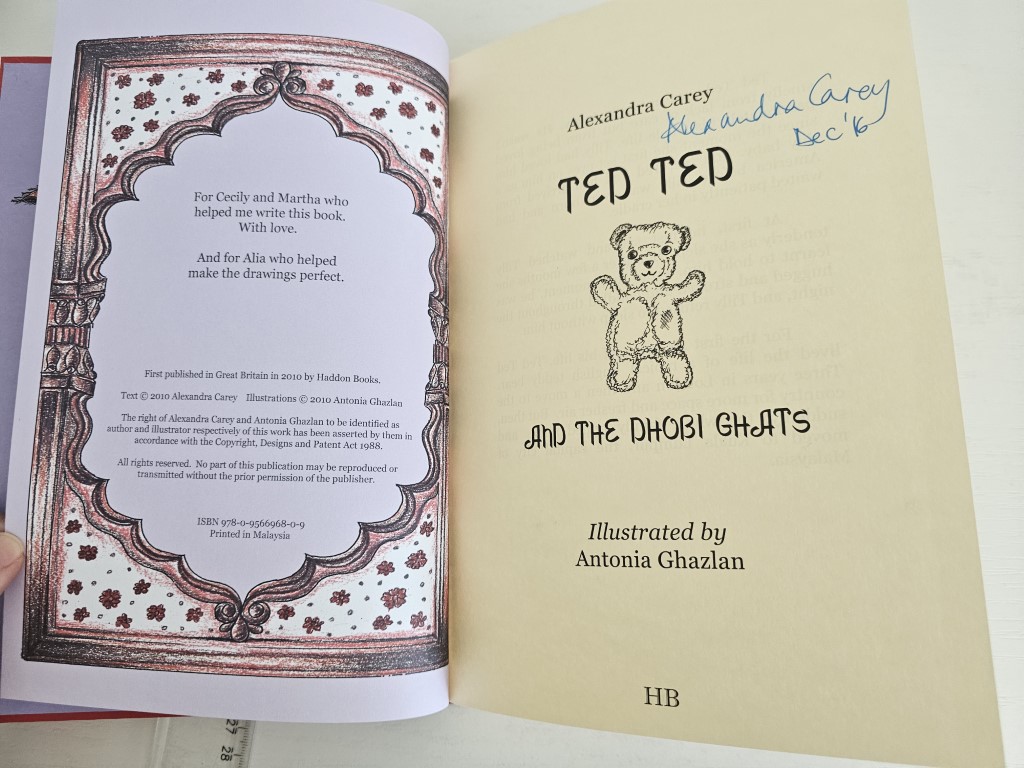 For Cecily and Martha who
helped me write this book.
With love.
And for Alia who helped
make the drawings perfect.
First published in Great Britain in 2010 by Haddon Books.
Text © 2010 Alexandra Carey Illustrations © 2010 Antonia Ghazlan
The right of Alexandra Carey and Antonia Ghazlan to be identified as
author and illustrator respectively of this work has been asserted by them in
accordance with the Copyright, Designs and Patent Act 1988.
All rights reserved. No part of this publication may be reproduced or
transmitted without the prior permission of the publisher.
ISBN 978-0-9566968-0-9
Printed in Malaysia
Alexandra Carey
Alexandra Carey
Dec '16
TED TED
AND THE DHOBI GHATS
Illustrated by
Antonia Ghazlan
HB
27
28